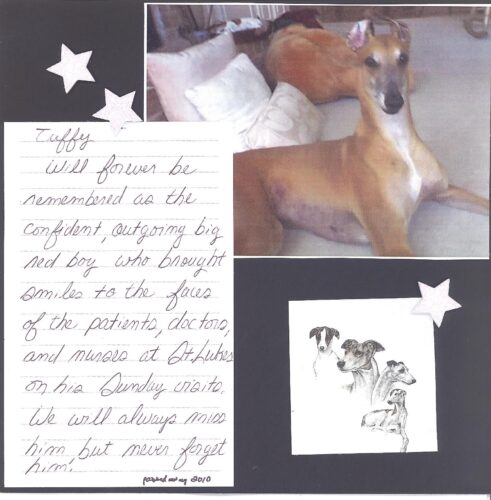 Tuffy
Will forever be
remembered as the
confident, outgoing big
red boy who brought
smiles to the faces
of the patients, doctors,
and nurses at St. Lukes
on his Sunday visits.
We will always miss
him but never forget
him!
passed away 2010